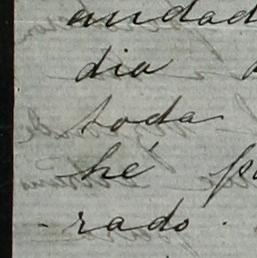 andad
dia
toda
hé p
- rado.